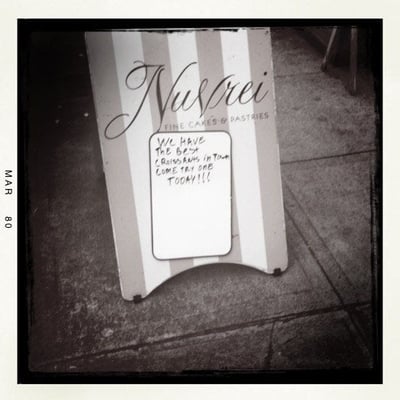 Nusrei
FINE CAKES & PASTRIES
WE HAVE
THE BEST
CROISSANTS in Town
COME TRY ONE
TODAY!!!
MAR 80